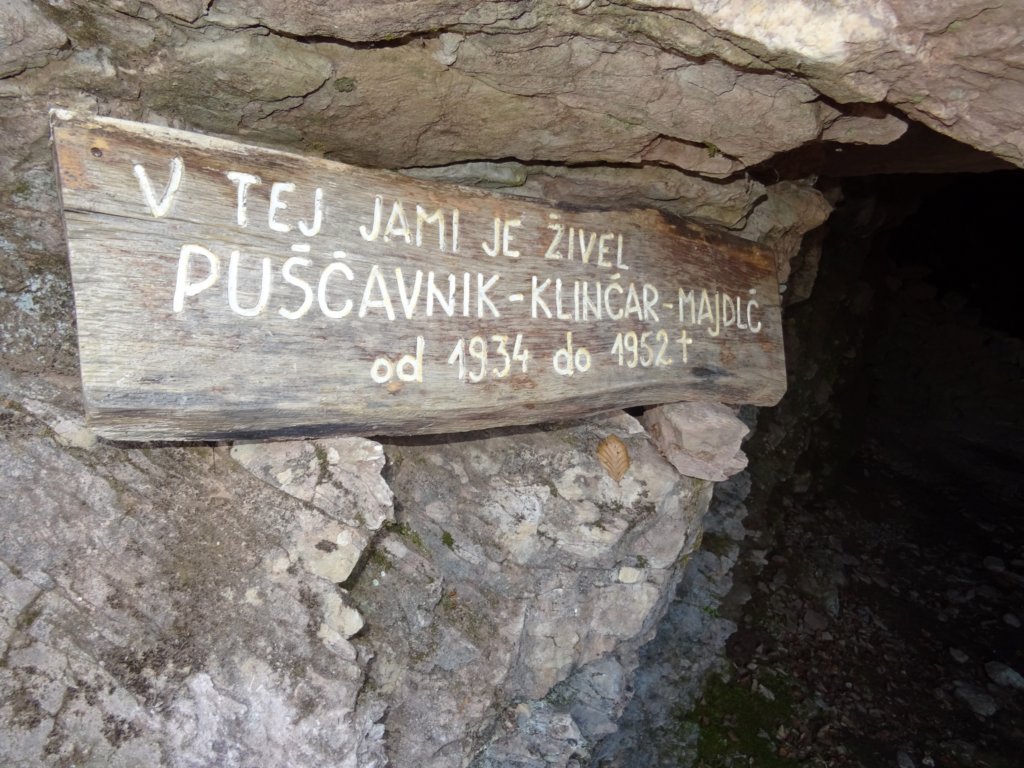 V TEJ JAMI JE ŽIVEL
PUŠČAVNIK-KLINČAR-MAJDLČ
od 1934 do 1952 †